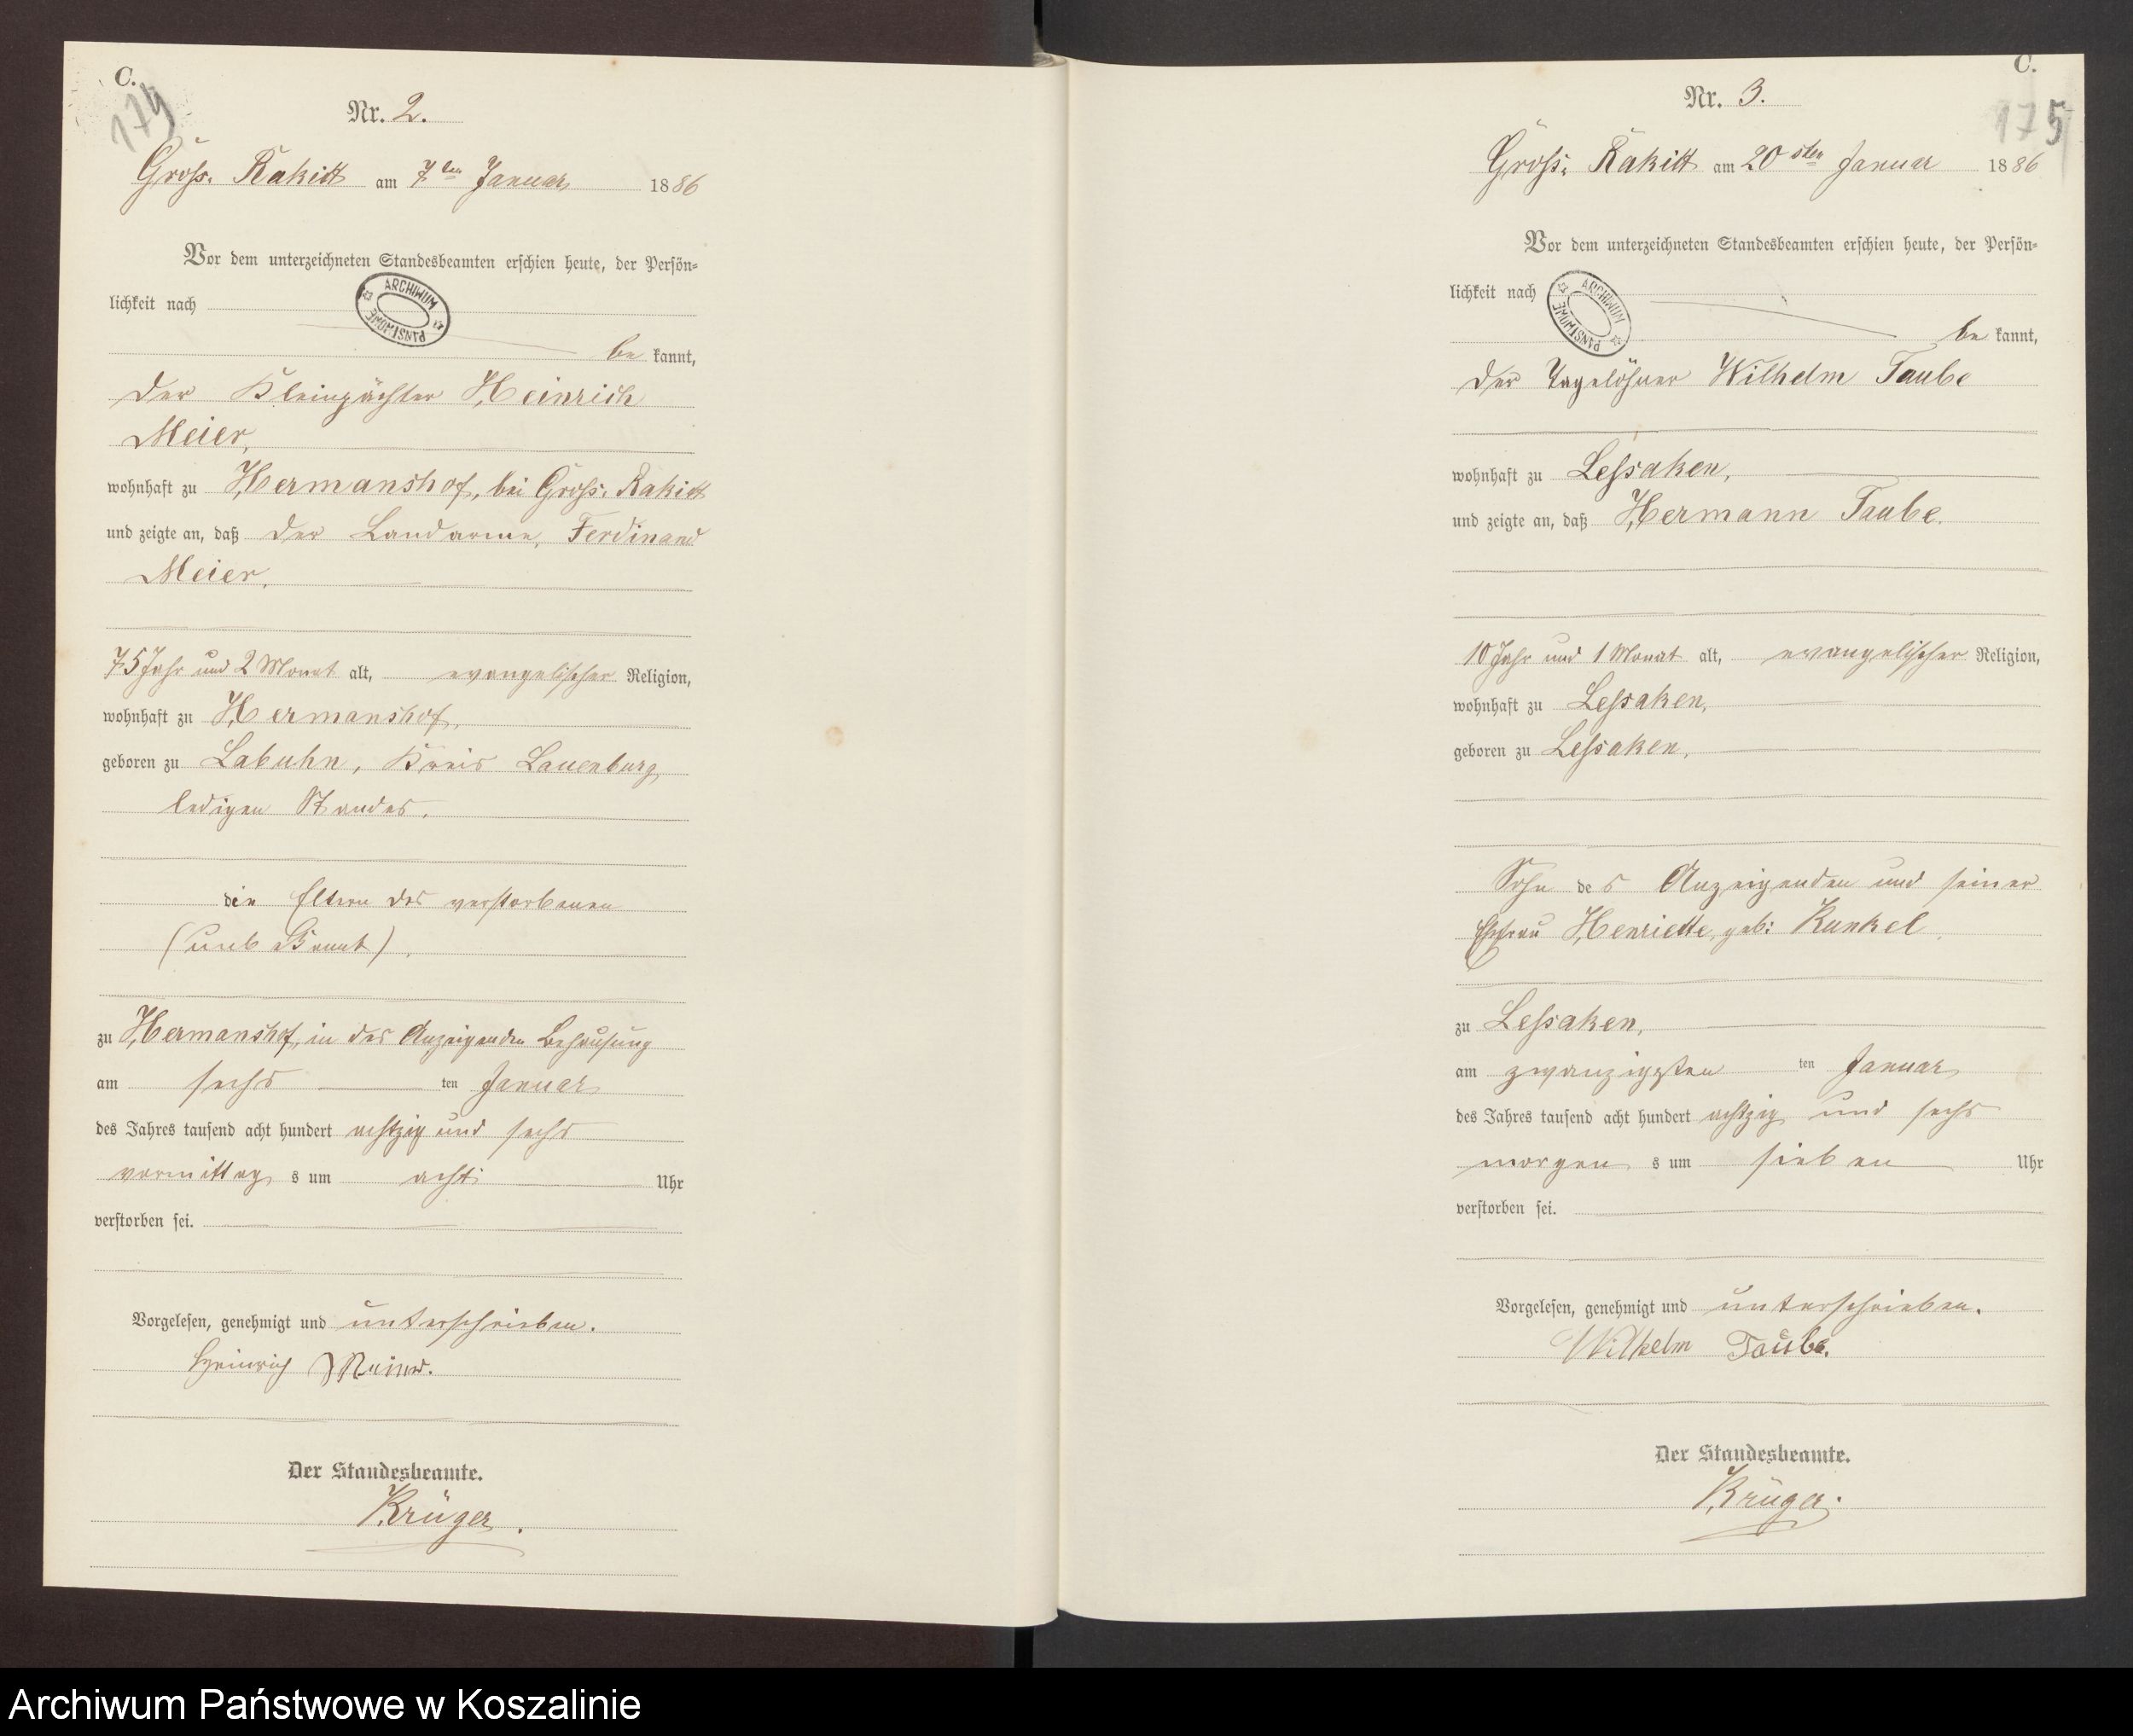 C.
174
Nr. 2.
Gross. Rakitt am 7ten Januar 1886
Vor dem unterzeichneten Standesbeamten erschien heute, der Persön-
lichkeit nach
ARCHIWUM PAŃSTWOWE
be kannt,
der Kleinpächter Heinrich
Meier,
wohnhaft zu Hermanshof, bei Gross. Rakitt
und zeigte an, daß der Landarme, Ferdinand
Meier,
75 Jahr und 2 Monat alt, evangelischer Religion,
wohnhaft zu Hermanshof,
geboren zu Labuhn, Kreis Lauenburg,
ledigen Standes,
die Eltern des verstorbenen
(unbekannt),
zu Hermanshof, in des Anzeigenden Behausung
am sechs ten Januar
des Jahres tausend acht hundert achtzig und sechs
vormittag s um acht Uhr
verstorben sei.
Vorgelesen, genehmigt und unterschrieben.
Heinrich Meier.
Der Standesbeamte.
Krüger.
C.
175
Nr. 3.
Gross. Rakitt am 20sten Januar 1886
Vor dem unterzeichneten Standesbeamten erschien heute, der Persön-
lichkeit nach
ARCHIWUM PAŃSTWOWE
be kannt,
der Tagelöhner Wilhelm Taube
wohnhaft zu Lessaken,
und zeigte an, daß Hermann Taube.
10 Jahr und 1 Monat alt, evangelischer Religion,
wohnhaft zu Lessaken,
geboren zu Lessaken,
Sohn des Anzeigenden und seiner
Ehefrau Henriette, geb: Runkel,
zu Lessaken,
am zwanzigsten ten Januar
des Jahres tausend acht hundert achtzig und sechs
morgen s um sieben Uhr
verstorben sei.
Vorgelesen, genehmigt und unterschrieben.
Wilhelm Taube.
Der Standesbeamte.
Krüger.
Archiwum Państwowe w Koszalinie